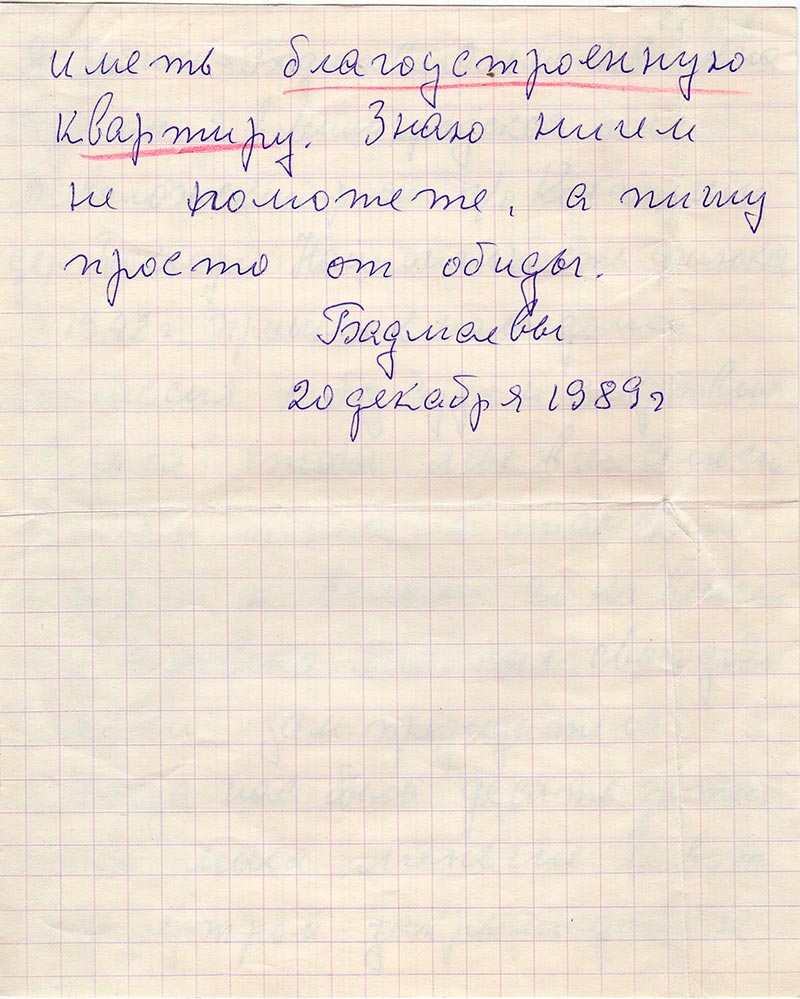 иметь благоустроенную
квартиру. Знаю ничем
не поможете, а пишу
просто от обиды.
Бадмаевы
20 декабря 1989г